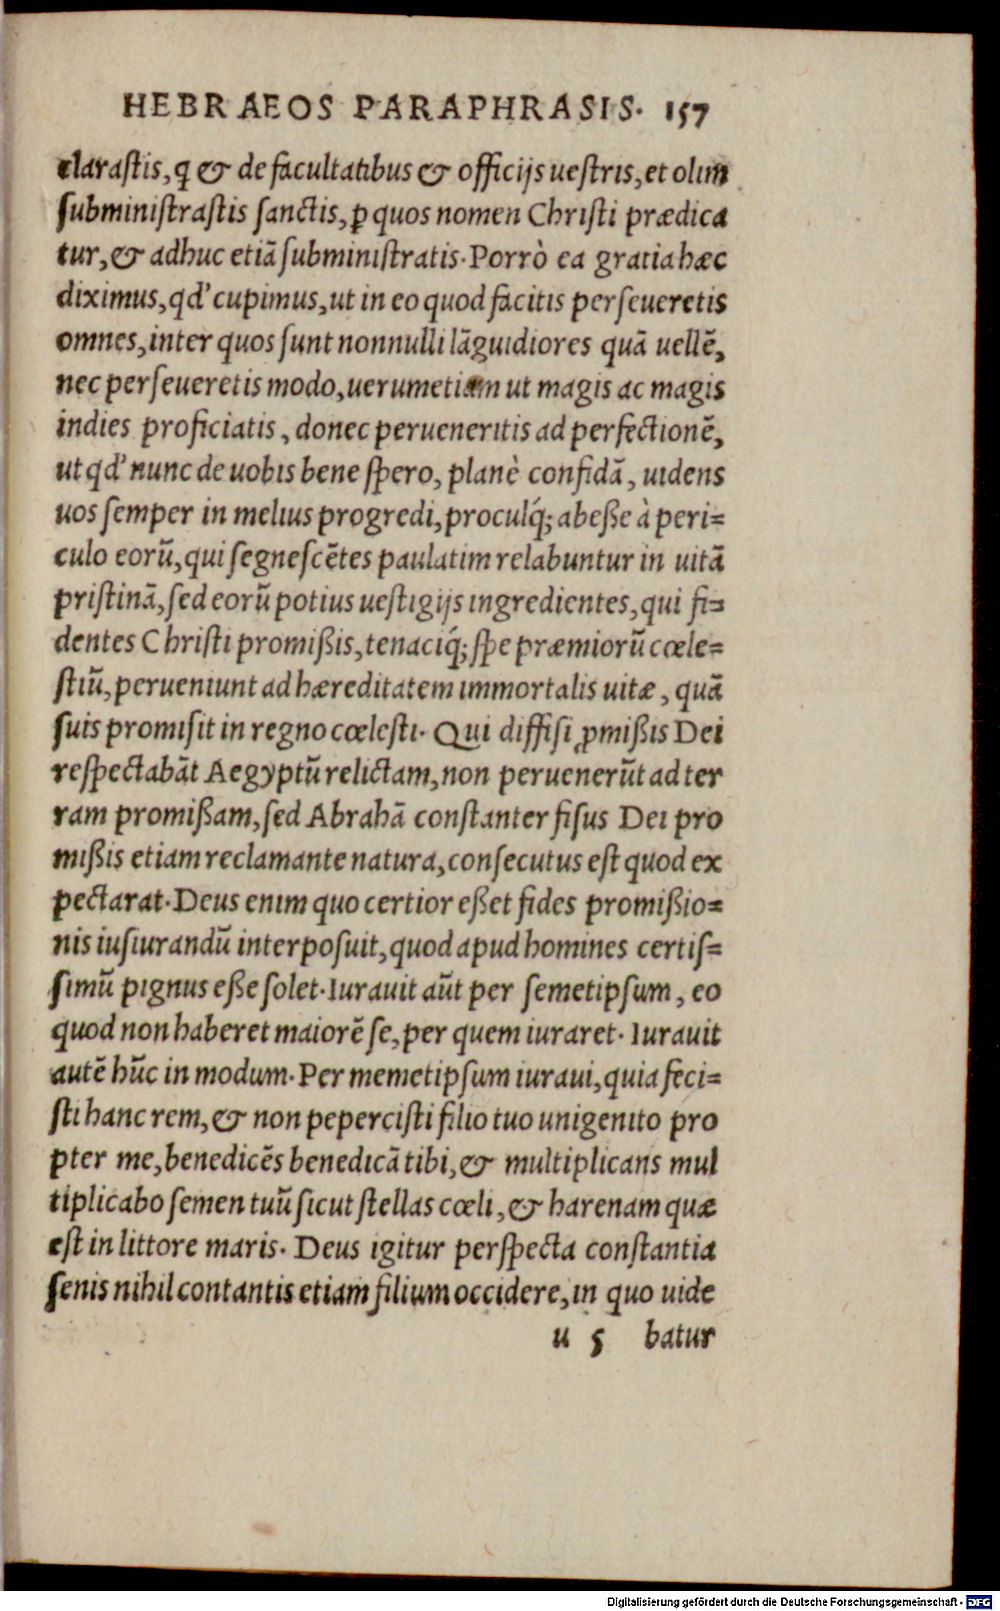 HEBRAEOS PARAPHRASIS. 157
clarastis, q & de facultatibus & officijs uestris, et olim
subministrastis sanctis, ꝑ quos nomen Christi prædica
tur, & adhuc etiã subministratis. Porrò ea gratia hæc
diximus, qd' cupimus, ut in eo quod facitis perseueretis
omnes, inter quos sunt nonnulli lãguidiores quã uellẽ,
nec perseueretis modo, uerumetiam ut magis ac magis
indies proficiatis, donec perueneritis ad perfectionẽ,
ut qd' nunc de uobis bene spero, planè confidã, uidens
uos semper in melius progredi, proculq́; abesse à peri=
culo eorũ, qui segnescẽtes paulatim relabuntur in uitã
pristinã, sed eorũ potius uestigijs ingredientes, qui fi=
dentes Christi promissis, tenaciq́; spe præmiorũ cœle=
stiũ, perueniunt ad hæreditatem immortalis uitæ, quã
suis promisit in regno cœlesti. Qui diffisi ꝓmissis Dei
respectabãt Aegyptũ relictam, non peruenerũt ad ter
ram promissam, sed Abrahã constanter fisus Dei pro
missis etiam reclamante natura, consecutus est quod ex
pectarat. Deus enim quo certior esset fides promissio=
nis iusiurandũ interposuit, quod apud homines certis=
simũ pignus esse solet. Iurauit aũt per semetipsum, eo
quod non haberet maiorẽ se, per quem iuraret. Iurauit
autẽ hũc in modum. Per memetipsum iuraui, quia feci=
sti hanc rem, & non pepercisti filio tuo unigenito pro
pter me, benedicẽs benedicã tibi, & multiplicans mul
tiplicabo semen tuũ sicut stellas cœli, & harenam quæ
est in littore maris. Deus igitur perspecta constantia
senis nihil contantis etiam filium occidere, in quo uide
u 5 batur
Digitalisierung gefördert durch die Deutsche Forschungsgemeinschaft - DFG